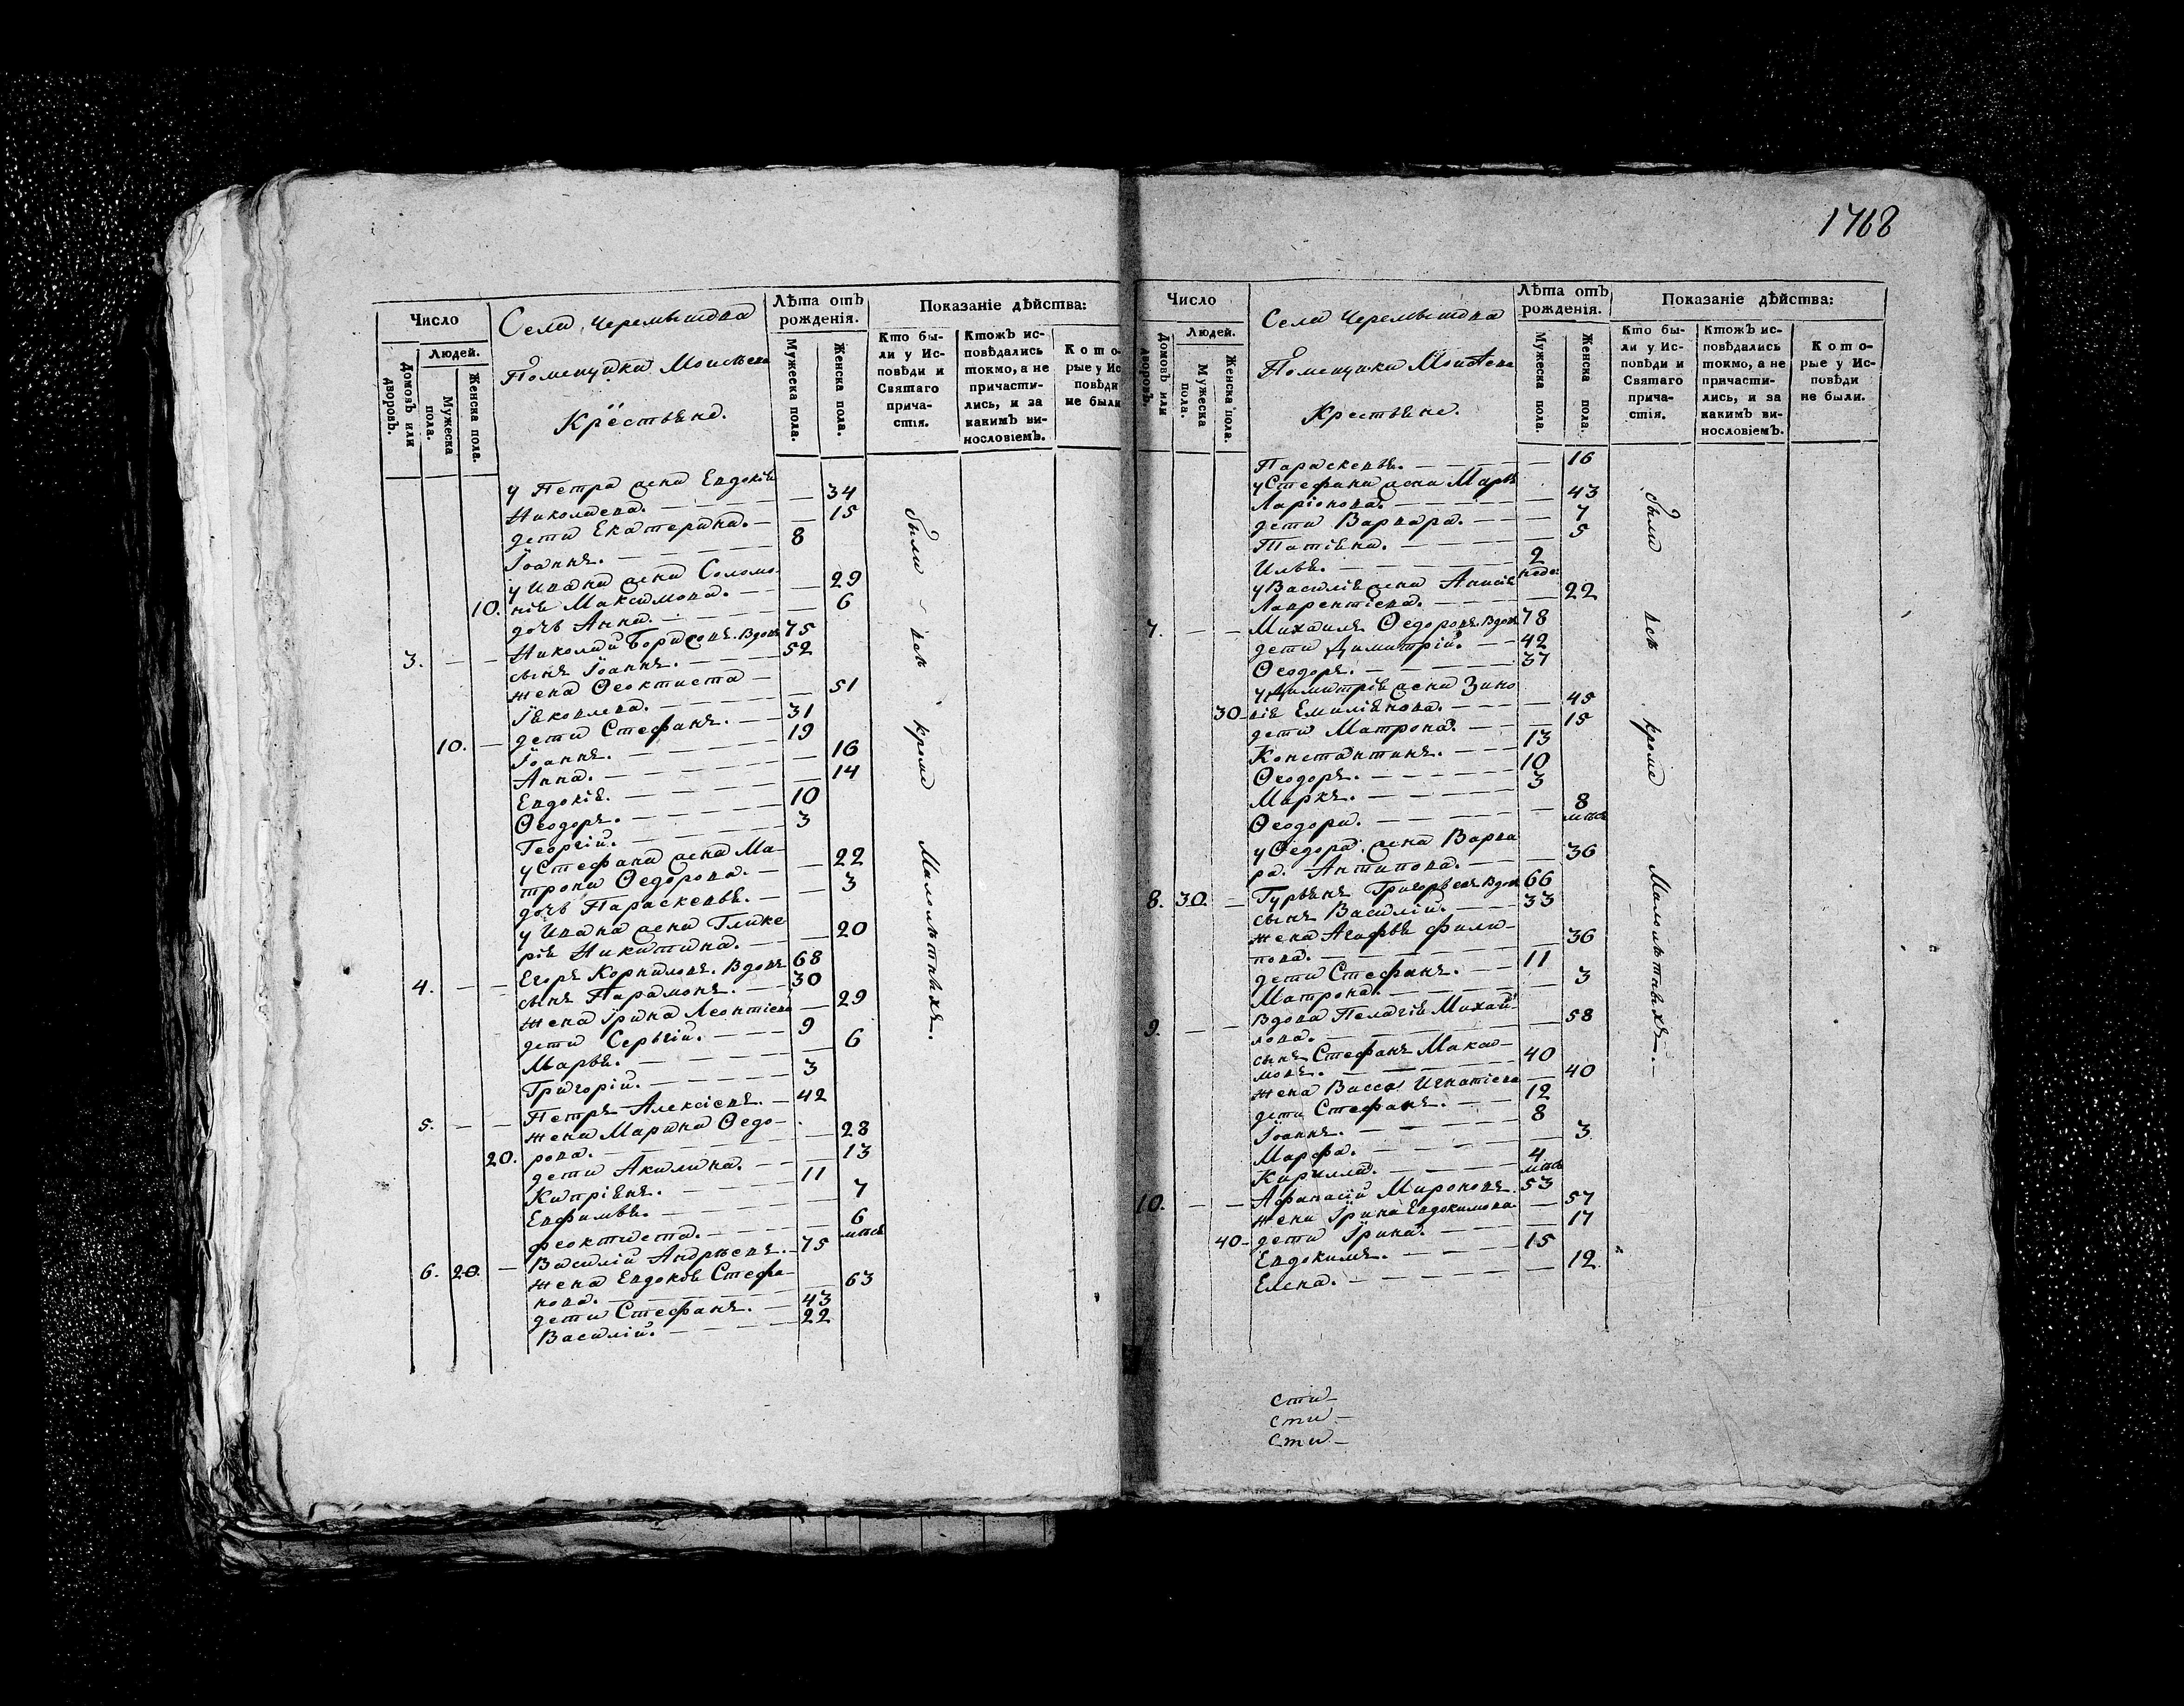 1768
Число
Людей.
Домовъ или дворовъ.
Мужеска пола.
Женска пола.
Села Черемышева
Помещика Моисѣева
Крестьяне.
Лѣта отъ рожденія.
Мужеска пола.
Женска пола.
Показаніе дѣйства:
Кто бы-
ли у Ис-
повѣди и
Святаго
прича-
стія.
Ктожъ ис-
повѣдались
токмо, а не
причасти-
лись, и за
какимъ ви-
нословіемъ.
Кото-
рые у Ис
повѣди
не были
у Петра жена Евдокія
Николаева. — 34
дети Екатерина. — 15
Іоаннъ. — 8
у Ивана жена Соломо-
10. нія Максимова. — 29
дочь Анна. — 6
3. — — Николай Борисовъ. Вдовъ 75
сынъ Іоаннъ. — 52
жена Феоктиста —
Яковлева. — 51
10. — дети Стефанъ. — 31
Іоаннъ. — 19
Анна. — 16
Евдокія. — 14
Ѳеодоръ. — 10
Георгій. — 3
у Стефана жена Ма-
трона Ѳедорова. — 22
дочь Параскевья. — 3
у Ивана жена Глике-
рія Никитина. — 20
4. — — Егоръ Корниловъ. Вдовъ 68
сынъ Парамонъ. — 30
жена Ірина Леонтіева — 29
дети Сергій. — 9
Марья. — 6
Григорій. — 3
5. — — Петръ Алексіевъ. — 42
жена Марина Ѳедо-
20. рова. — 28
дети Акилина. — 13
Кипріянъ. — 11
Евфимья. — 7
феоктиста. — 6 мѣсѣ
6. 20. — Василій Андрѣевъ. — 75
жена Евдокія Стефа-
нова. — 63
дети Стефанъ. — 43
Василій. — 22
были всѣ кроме Малолѣтныхъ.
Число
Людей.
Домовъ или дворовъ.
Мужеска пола.
Женска пола.
Села Черемышева
Помещика Моисѣева
Крестьяне.
Лѣта отъ рожденія.
Мужеска пола.
Женска пола.
Показаніе дѣйства:
Кто бы-
ли у Ис-
повѣди и
Святаго
прича-
стія.
Ктожъ ис-
повѣдались
токмо, а не
причасти-
лись, и за
какимъ ви-
нословіемъ.
Кото-
рые у Ис-
повѣди
не были.
Параскевья. — 16
у Стефана жена Марья
Ларіонова. — 43
дети Варвара. — 7
Татіяна. — 5
Илья. — 2 неде:
у Василія жена Анисія
Лаврентіева. — 22
7. — — Михаилъ Ѳедоровъ. Вдовъ 78
дети Димитрій. — 42
Ѳеодоръ. — 37
у Димитрія жена Зино
30 — вія Емиліянова. — 45
дети Матрона. — 15
Константинъ. — 13
Ѳеодоръ. — 10
Маркъ. — 3
Ѳеодора. — 8 мѣсѣ
у Ѳедора жена Варва
ра. Антипова. — 36
8. 30. — Гурьянъ Григорьевъ Вдовъ 66
сынъ Василій. — 33
жена Агафья Фили-
пова. — 36
дети Стефанъ. — 11
Матрона. — 3
9. — — Вдова Пелагія Михай-
лова. — 58
сынъ Стефанъ Мака-
мовъ. — 40
жена Васса Игнатіева — 40
дети Стефанъ. — 12
Іоаннъ. — 8
Марфа. — 3
Кирилла. — 4 мѣсѣ
10. — — Афанасій Мироновъ. 53
жена Ірина Евдокимова — 57
40 — дети Ірина. — 17
Евдокимъ. — 15
Елена. — 12
были всѣ кроме Малолѣтныхъ. —
сти —
сти —
сти —